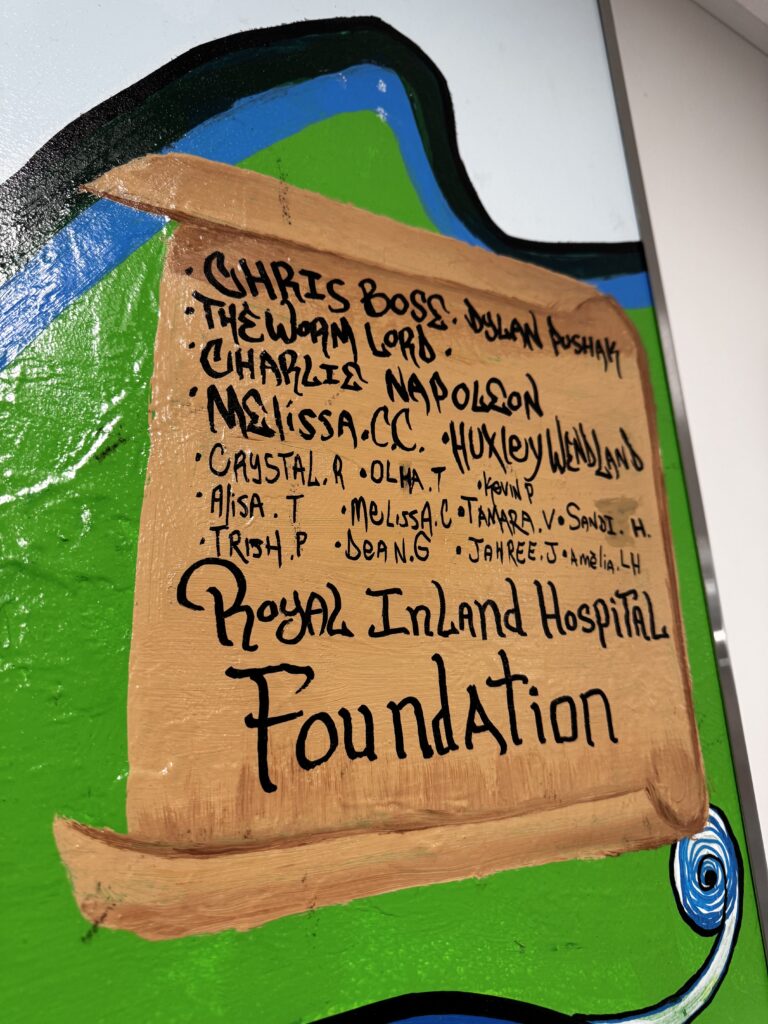 · CHRIS BOSE · DYLAN PUSHAK
· THE WORM LORD ·
· CHARLIE NAPOLEON
· MELiSSA.C.C. · HUXLey WENDLAND
· CRYSTAL.R · OLHA.T · Kevin P
· AliSA.T · MeLiSSA.C · TAMARA.V · SANDI.H.
· TRISH.P · DeAN.G · JAHREE.J · Amelia.LH
ROYAL INLAnd HOSPITAL
FoundATion